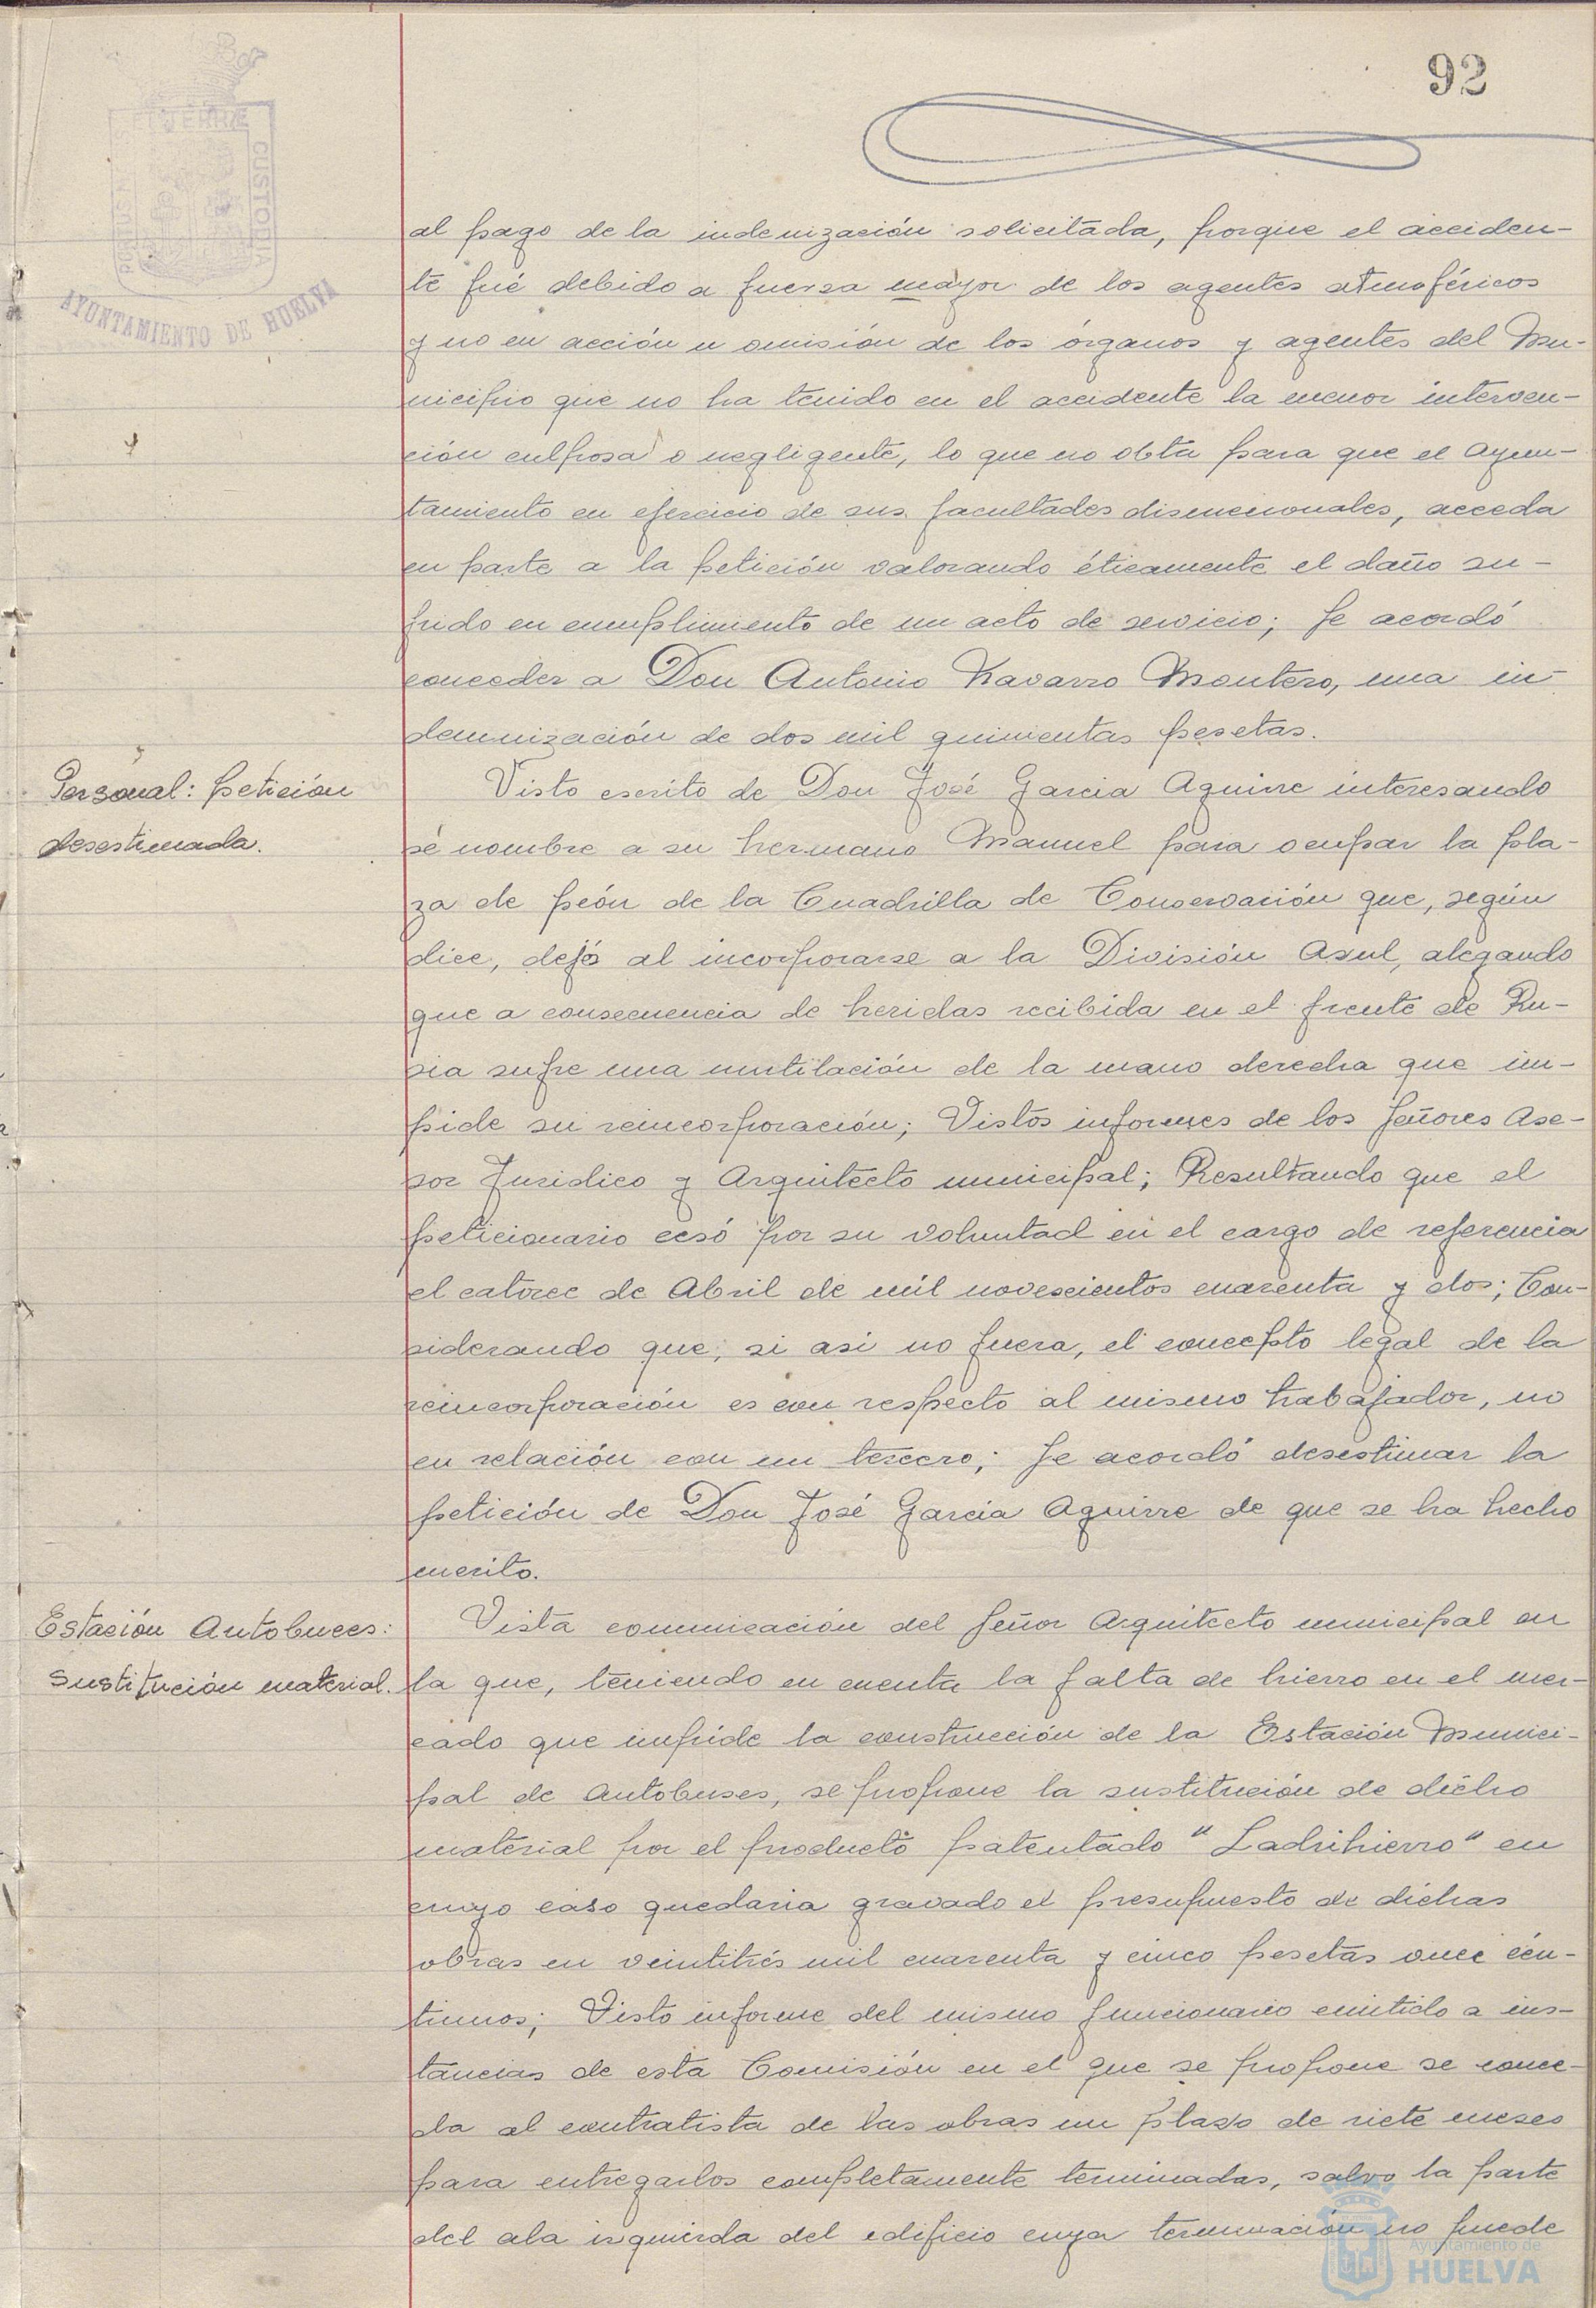 92
PORTUS MARIS ET TERRÆ CUSTODIA
AYUNTAMIENTO DE HUELVA
al pago de la indenización solicitada, porque el acciden-
te fué debido a fuerza mayor de los agentes atmoféricos
y no en acción u omisión de los órganos y agentes del Mu-
nicipio que no ha tenido en el accidente la menor interven-
ción culposa o negligente, lo que no obta para que el Ayun-
tamiento en ejercicio de sus facultades disnecionales, acceda
en parte a la petición valorando éticamente el daño su-
frido en cumplimiento de un acto de servicio; Se acordó
conceder a Don Antonio Navarro Montero, una in-
demnización de dos mil quinientas pesetas.
Personal: petición
desestimada.
Visto escrito de Don José Garcia Aguirre interesando
se nombre a su hermano Manuel para ocupar la pla-
za de peón de la Cuadrilla de Conservación que, según
dice, dejó al incorporarse a la División Azul, alegando
que a consecuencia de heridas recibida en el frente de Ru-
sia sufre una mutilación de la mano derecha que im-
pide su reincorporación; Vistos informes de los Señores Ase-
sor Juridico y Arquitecto municipal; Resultando que el
peticionario cesó por su voluntad en el cargo de referencia
el catorce de Abril de mil novescientos cuarenta y dos; Con-
siderando que, si asi no fuera, el concepto legal de la
reincorporación es con respecto al mismo trabajador, no
en relación con un tercero; Se acordó desestimar la
petición de Don José Garcia Aguirre de que se ha hecho
merito.
Estación Autobuces:
Sustitución material.
Vista comunicación del Señor Arquitecto municipal en
la que, teniendo en cuenta la falta de hierro en el mer-
cado que impide la construcción de la Estación Munici-
pal de Autobuses, se propone la sustitución de dicho
material por el producto patentado "Ladrihierro" en
cuyo caso quedaria gravado el presupuesto de dichas
obras en veintitrés mil cuarenta y cinco pesetas once cén-
timos; Visto informe del mismo funcionario emitido a ins-
tancias de esta Comisión en el que se propone se conce-
da al contratista de las obras un plazo de siete meses
para entregarlos completamente terminadas, salvo la parte
del ala izquierda del edificio cuya terminación no puede
Ayuntamiento de
HUELVA